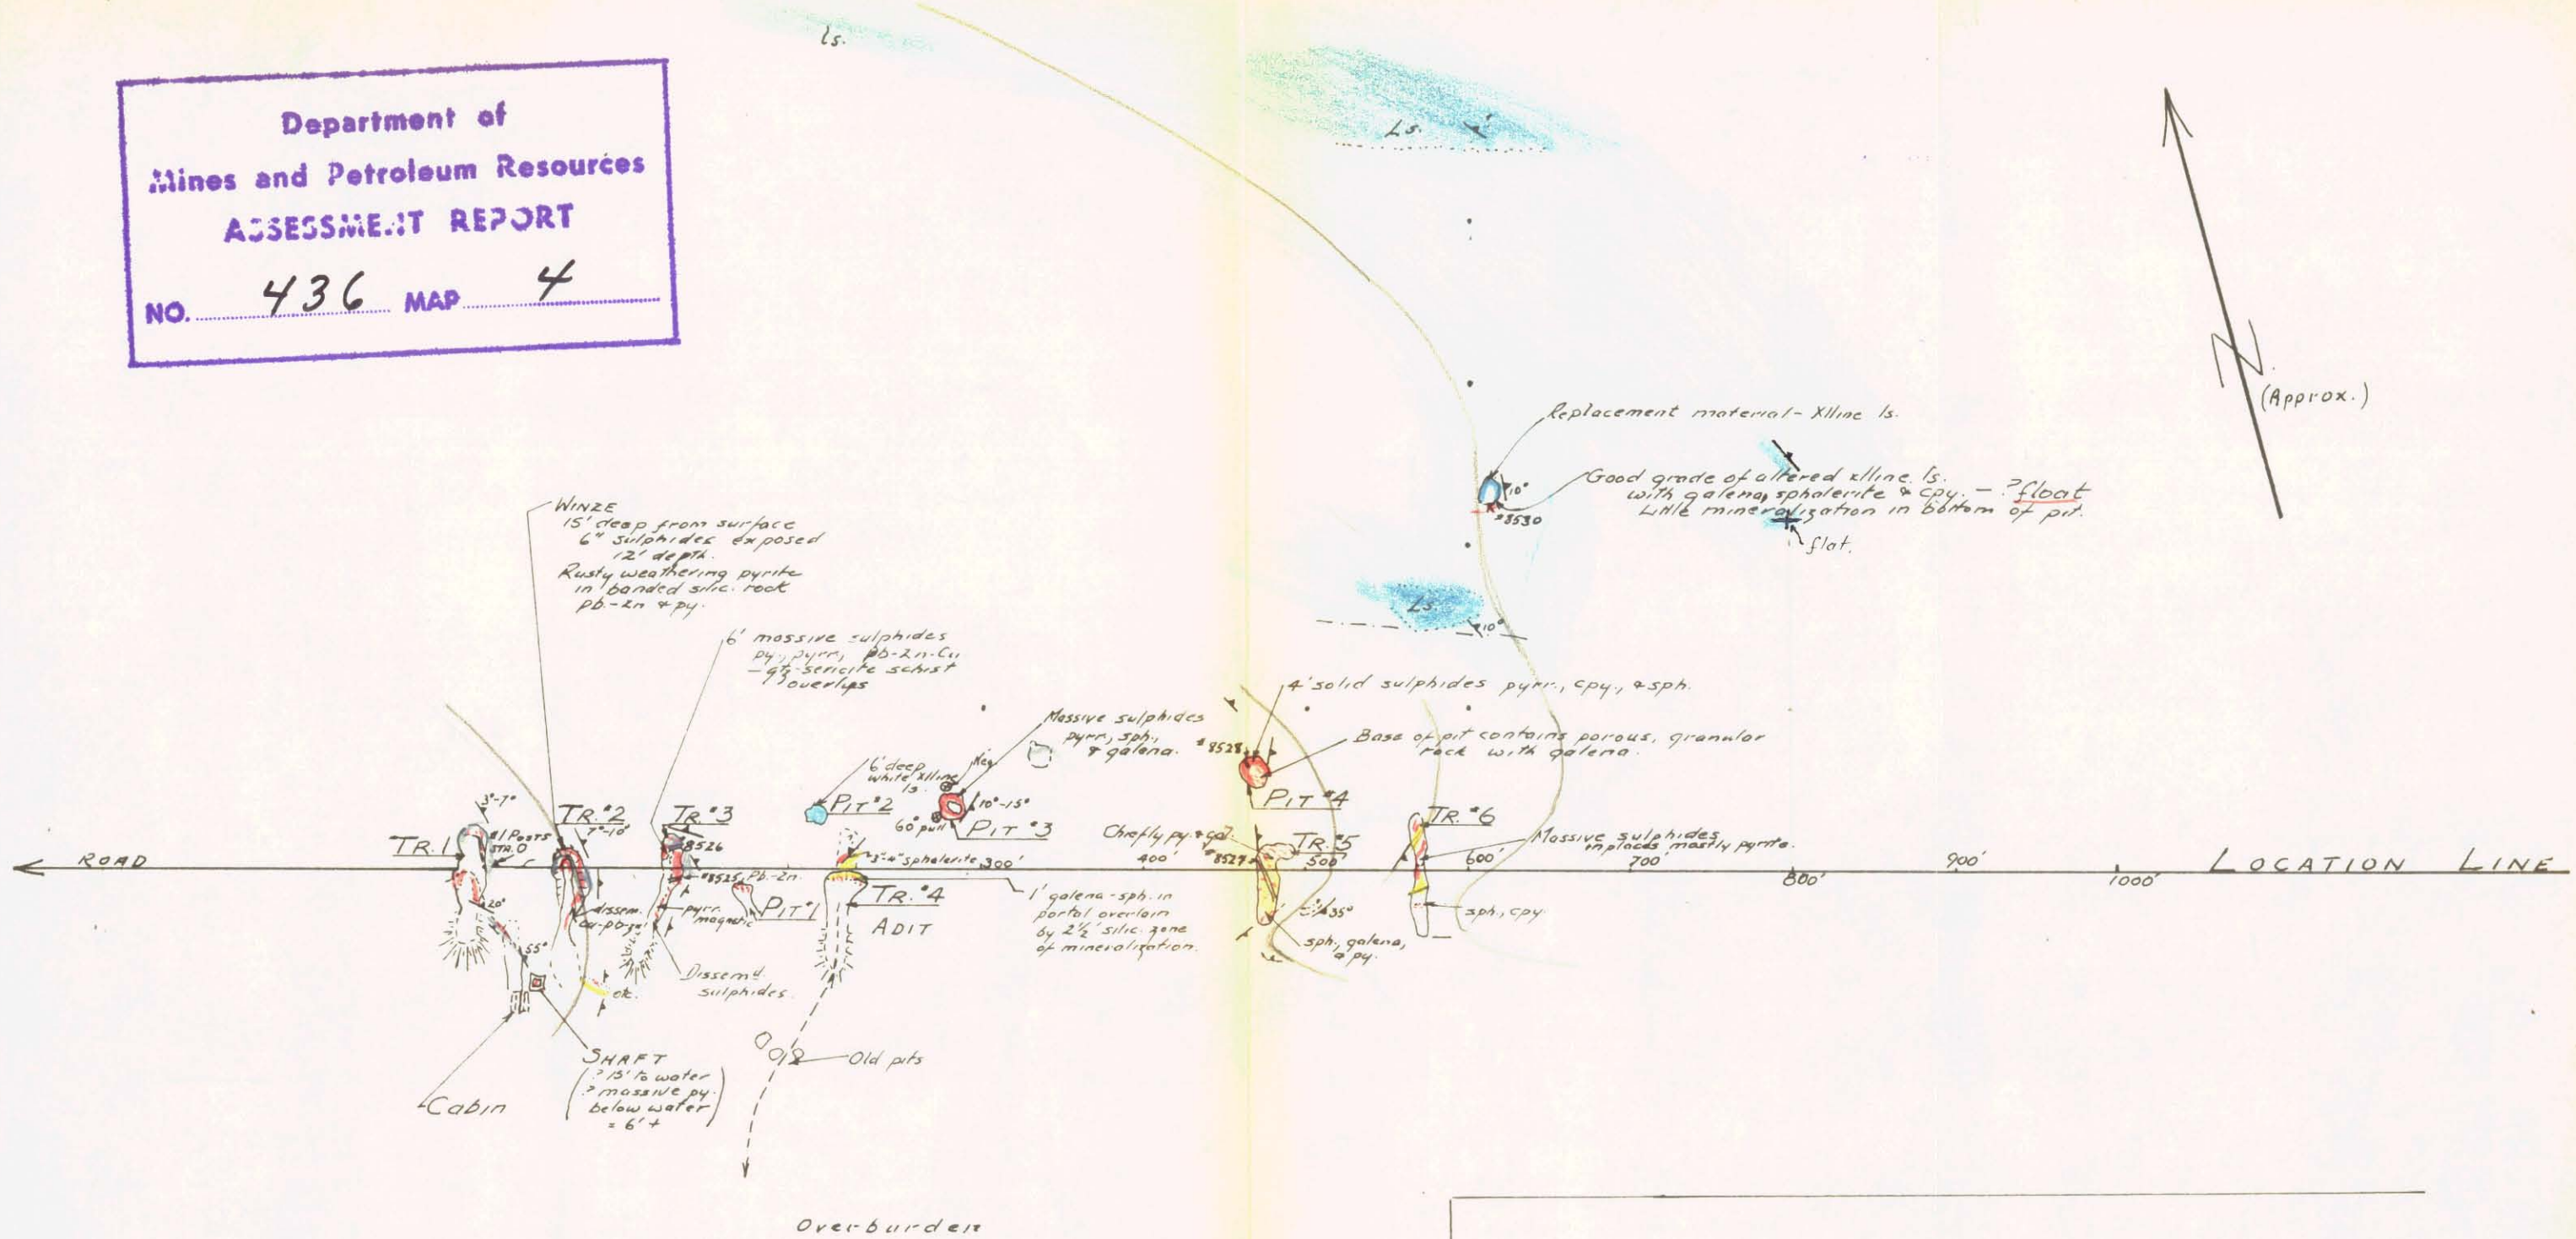 Department of
Mines and Petroleum Resources
ASSESSMENT REPORT
NO. 436 MAP 4
ls.
Ls.
N
(Approx.)
Replacement material - Xlline ls.
10°
Good grade of altered xlline ls.
with galena, sphalerite & cpy. - ? float
Little mineralization in bottom of pit.
#8530
flat.
Ls.
10°
WINZE
15' deep from surface
6" sulphides exposed
12' depth.
Rusty weathering pyrite
in banded silic. rock
pb-zn & py.
6' massive sulphides
py., pyrr., pb-zn-Cu
- qtz-sericite schist
overlies
4' solid sulphides pyrr., cpy., & sph.
Massive sulphides
pyrr., sph.,
& galena.
#8528
Base of pit contains porous, granular
rock with galena.
6' deep
white xlline
ls.
Neg.
PIT #2
10°-15°
60° pull
PIT #3
PIT #4
3°-7°
TR. 1
#1 POSTS
STA. 0
TR. #2
7°-10°
TR. #3
8526
Chiefly py. & gal.
#8529
TR. #5
TR. #6
Massive sulphides
in places mostly pyrite.
ROAD
3"-4" sphalerite
300'
400'
500'
600'
700'
800'
900'
1000'
LOCATION LINE
#8525, Pb-Zn
20°
dissem.
cu-pb-zn
pyrr.
magnetic
PIT #1
TR. #4
ADIT
1' galena-sph. in
portal overlain
by 2½' silic. zone
of mineralization.
35°
sph., cpy.
sph., galena,
& py.
55°
Dissem'd.
sulphides.
SHAFT
? 15' to water
? massive py.
below water
= 6' +
Old pits
Cabin
Overburden